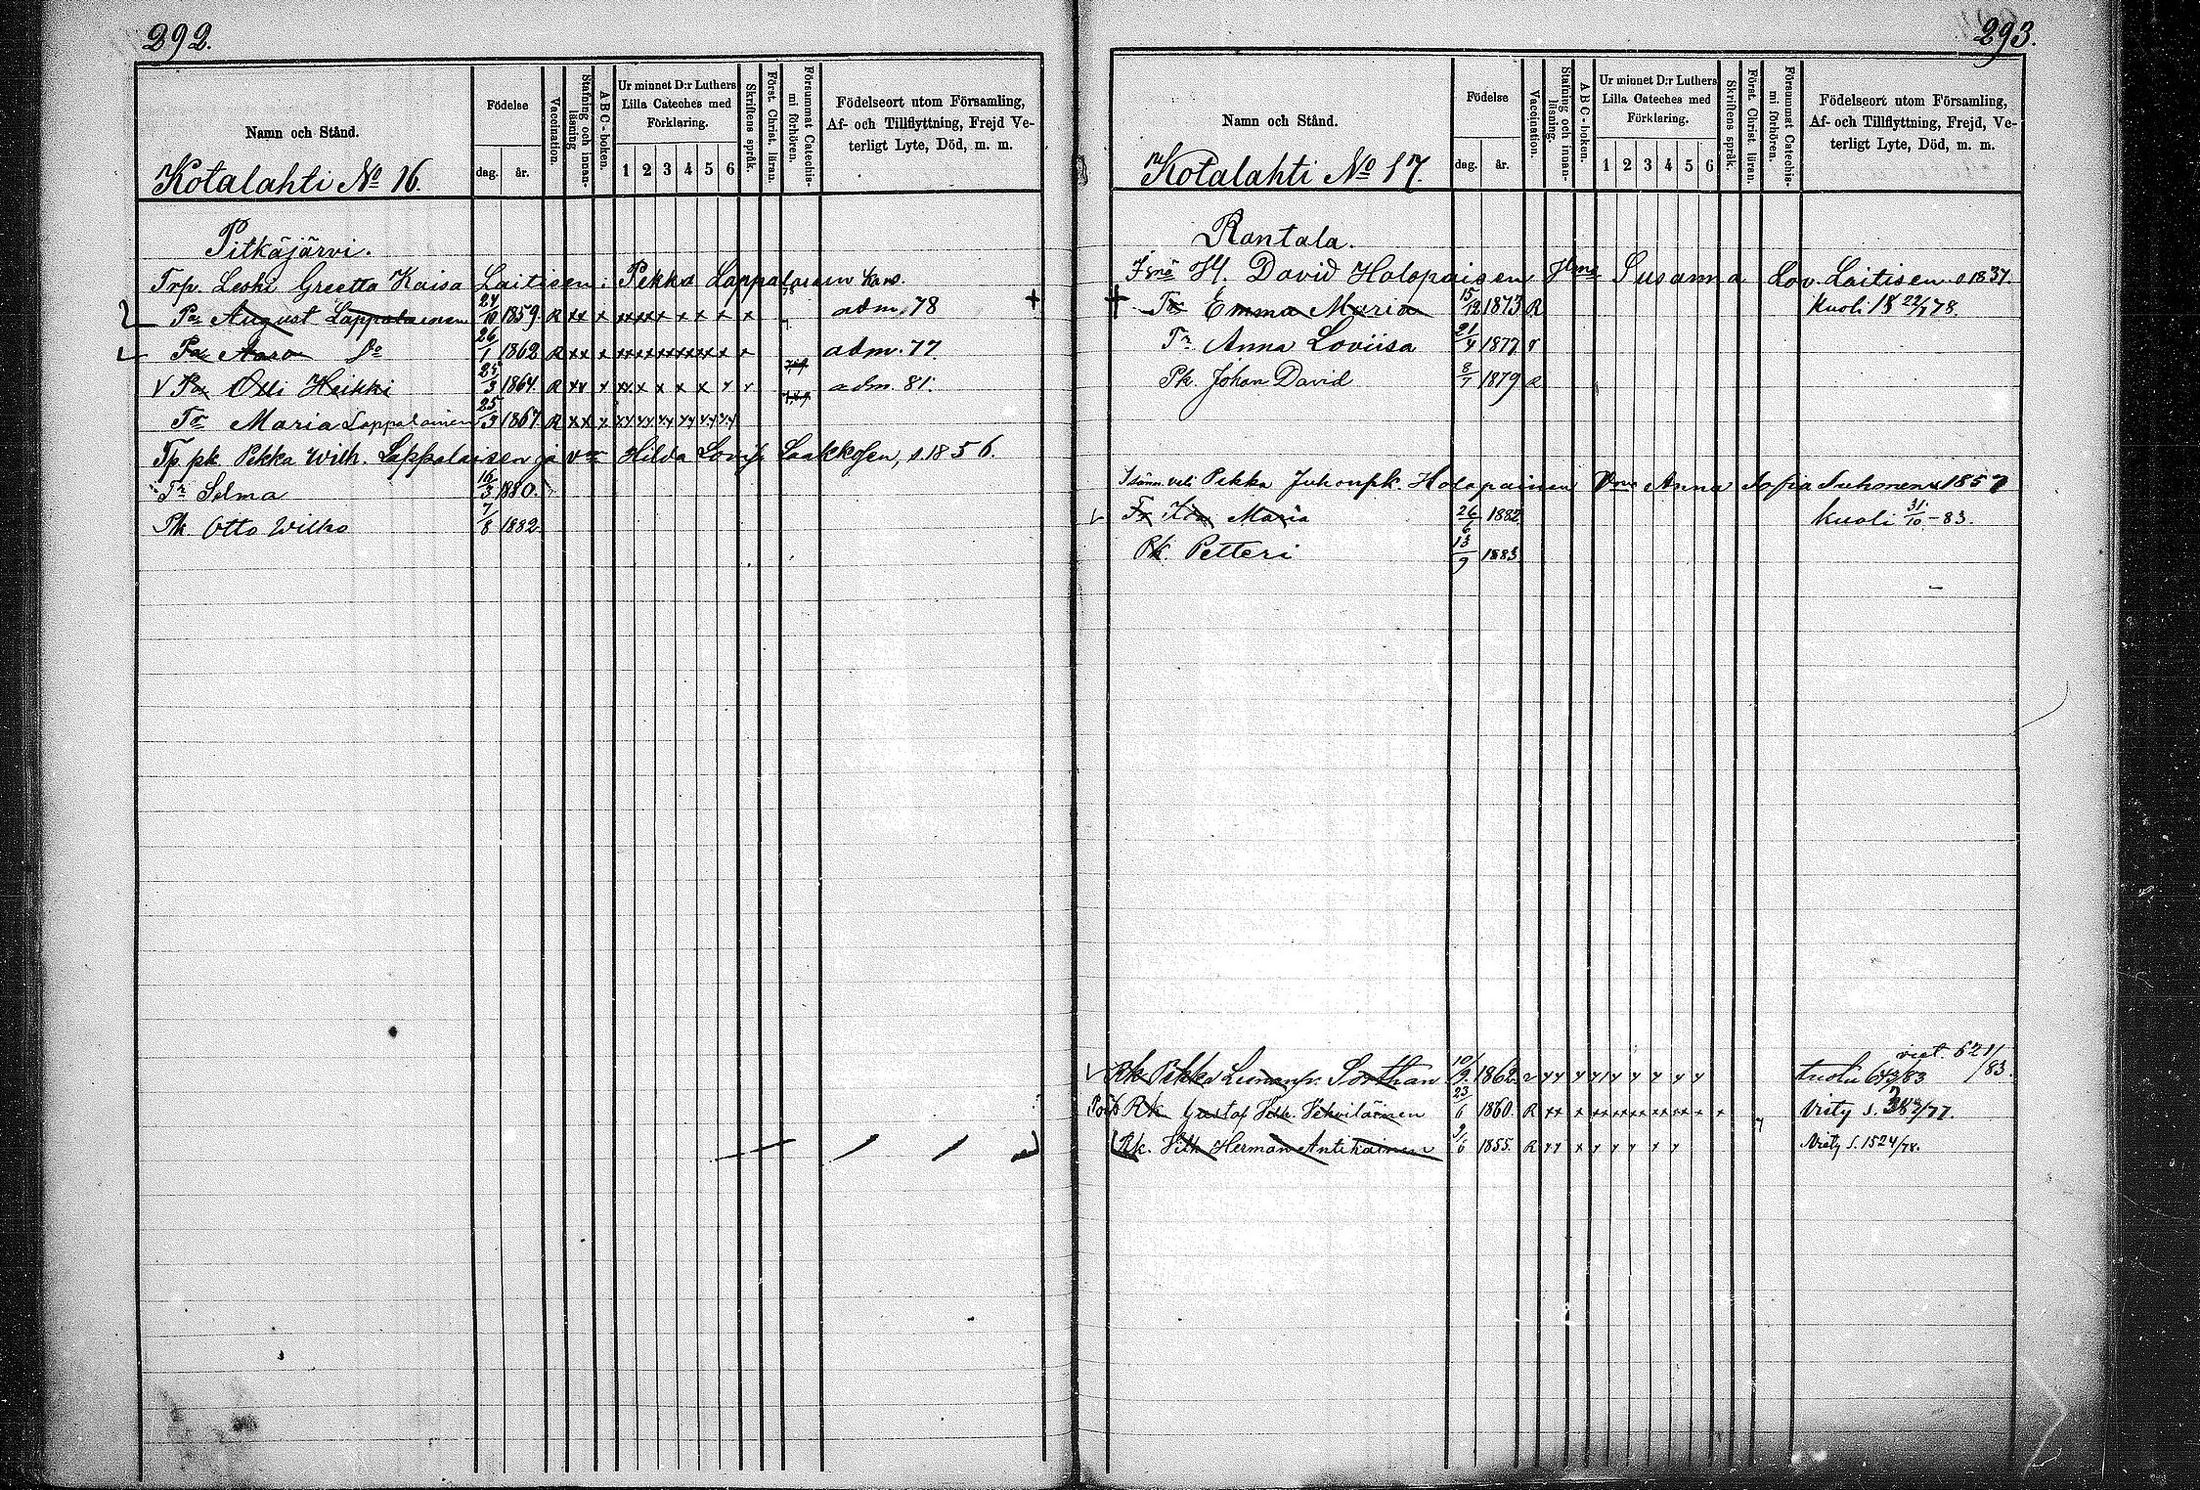 292.
Namn och Stånd.
Kotalahti No 16.
Födelse
dag. år.
Vaccination.
Stafning och innan-
läsning
A B C - boken.
Ur minnet D:r Luthers
Lilla Cateches med
Förklaring.
1 2 3 4 5 6
Skriftens språk.
Först. Christ. läran.
Försummat Catechis-
mi förhören.
Födelseort utom Församling,
Af- och Tillflyttning, Frejd Ve-
terligt Lyte, Död, m. m.
Pitkäjärvi.
Trp. Leski Greetta Kaisa Laitisen: Pekka Lappalaisen
August Lappalainen 24/10 1859 R xx x xxxx x x x x x adm. 78
Aaro Do 26/1 1862 R xx x xxxxxxxxx x adm. 77
V Olli Heikki 25/3 1864. R xx x adm. 81.
Tr Maria Lappalainen 25/3 1867. R xx x
Tp. pk. Pekka Wilh. Lappalaisen ja Hilda Lovis. Laakkosen, s 1856.
Tr Selma 16/3 1880.
Pk. Otto Wilho 7/8 1882.
293.
Namn och Stånd.
Kotalahti No 17.
Födelse
dag. år.
Vaccination.
Stafning och innan-
läsning.
A B C - boken.
Ur minnet D:r Luthers
Lilla Cateches med
Förklaring.
1 2 3 4 5 6
Skriftens språk.
Först. Christ. läran.
Försummat Catechis-
mi förhören.
Födelseort utom Församling,
Af- och Tillflyttning, Frejd, Ve-
terligt Lyte, Död, m. m.
Rantala.
H. David Holopaisen Susanna Lov. Laitisen s 1837.
+ Tr Emma Maria 15/12 1873 R kuoli 18 22/7 78.
Tr Anna Loviisa 21/4 1877
Pk. Johan David 8/7 1879 R
veli Pekka Juhonpk. Holopainen Anna Sofia Suhonen s 1857
Tr Maria 26/6 1882 kuoli 31/10 -83.
Pk. Petteri 13/9 1883.
Rk Pekka 10/9 1862
Rk. Gustaf Vehviläinen 23/6 1860. R xx x
Rk. Herman Antikainen 9/6 1855. R 1524/78.